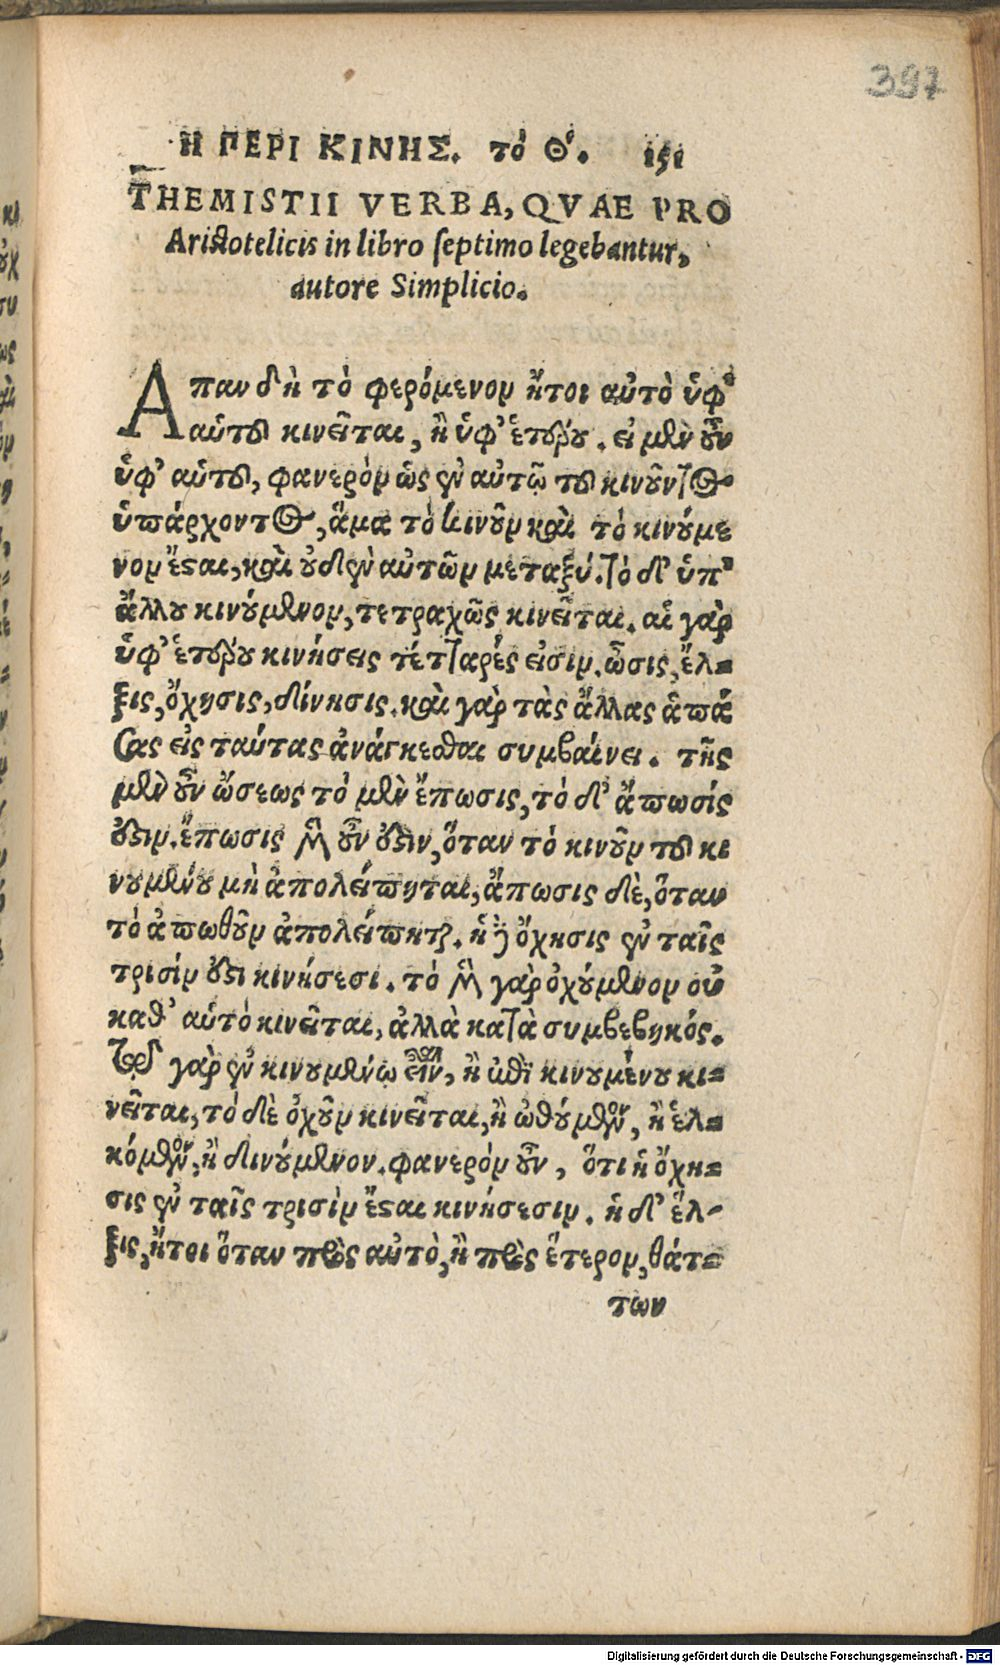 397
Ἢ ΠΕΡΙ ΚΙΝΗΣ. τὸ Θʹ. 151
THEMISTII VERBA, QVAE PRO
Aristotelicis in libro septimo legebantur,
autore Simplicio.
Απαν δὴ τὸ φερόμενον ἤτοι αὐτὸ ὑφ'
αὑτοῦ κινεῖται, ἢ ὑφ' ἑτέρου. εἰ μὲν οὖν
ὑφ' αὑτοῦ, φανερὸν ὡς ἐν αὐτῷ τοῦ κινοῦντος
ὑπάρχοντος, ἅμα τὸ κινοῦν καὶ τὸ κινούμε
νον ἔσται, καὶ οὐδὲν αὐτῶν μεταξύ. τὸ δ' ὑπ'
ἄλλου κινούμενον, τετραχῶς κινεῖται. αἱ γὰρ
ὑφ' ἑτέρου κινήσεις τέτταρές εἰσιν. ὦσις, ἕλ=
ξις, ὄχησις, δίνησις. καὶ γὰρ τὰς ἄλλας ἁπά
σας εἰς ταύτας ἀνάγεσθαι συμβαίνει. τῆς
μὲν οὖν ὤσεως τὸ μὲν ἔπωσις, τὸ δ' ἄπωσίς
ἐστιν. ἔπωσις μὲν οὖν ἐστιν, ὅταν τὸ κινοῦν τοῦ κι
νουμένου μὴ ἀπολείπηται, ἄπωσις δὲ, ὅταν
τὸ ἀπωθοῦν ἀπολείπηται. ἡ δὲ ὄχησις ἐν ταῖς
τρισίν ἐστι κινήσεσι. τὸ μὲν γὰρ ὀχούμενον οὐ
καθ' αὑτὸ κινεῖται, ἀλλὰ κατὰ συμβεβηκός.
Τῷ γὰρ ἐν κινουμένῳ εἶναι, ἢ ἐπὶ κινουμένου κι=
νεῖται, τὸ δὲ ὀχοῦν κινεῖται, ἢ ὠθούμενον, ἢ ἑλ=
κόμενον, ἢ δινούμενον. φανερὸν οὖν, ὅτι ἡ ὄχη=
σις ἐν ταῖς τρισὶν ἔσται κινήσεσιν. ἡ δ' ἕλ-
ξις, ἤτοι ὅταν πρὸς αὐτὸ, ἢ πρὸς ἕτερον, θάτ=
των
Digitalisierung gefördert durch die Deutsche Forschungsgemeinschaft - DFG